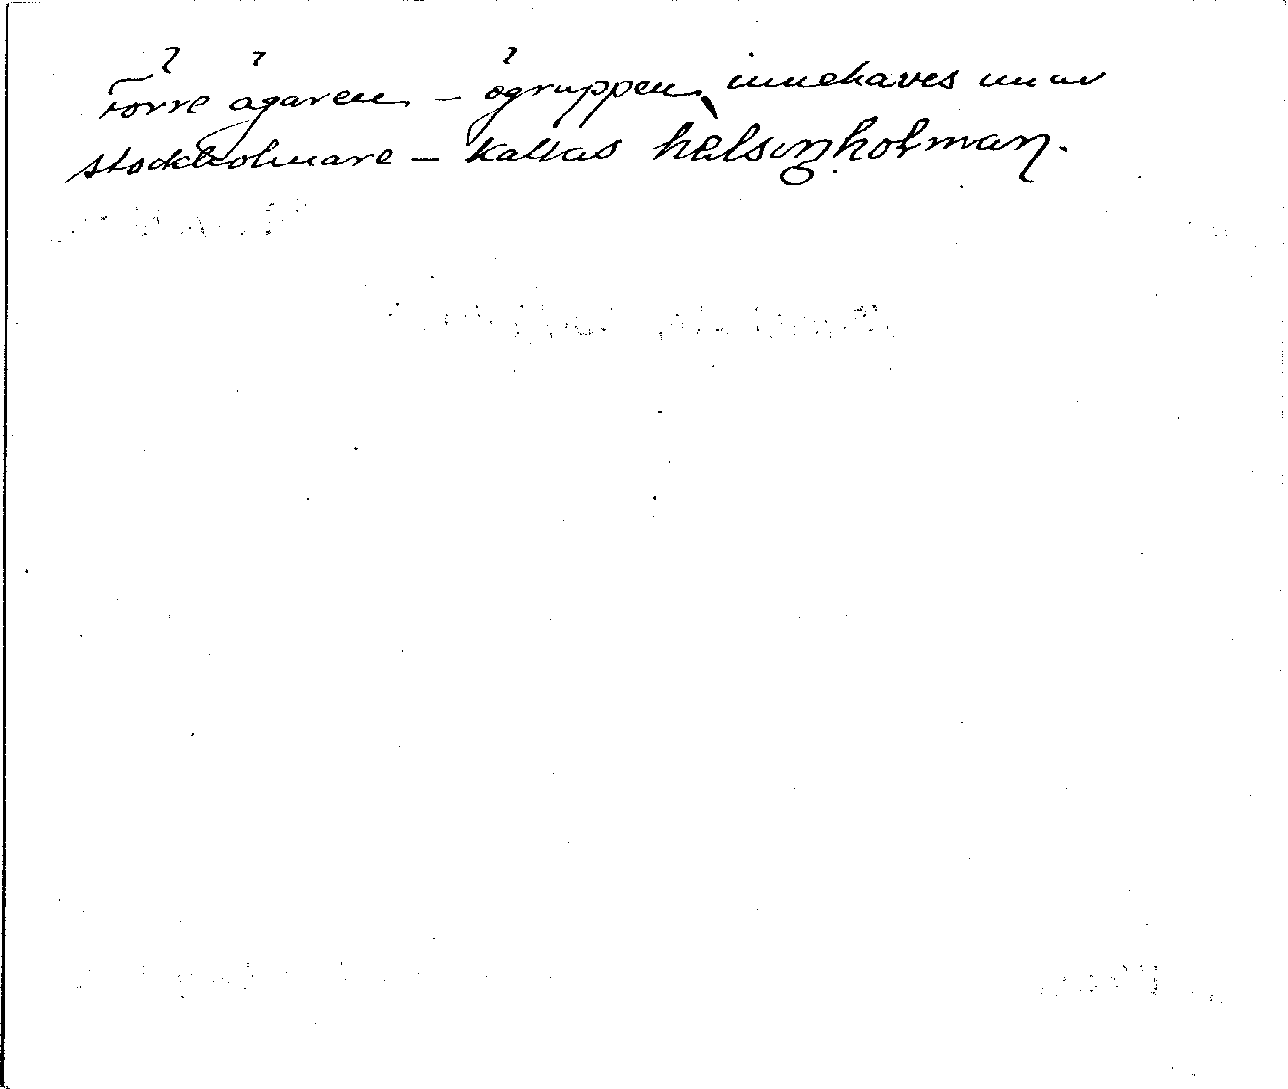 förre ägaren – ögruppen innehaves nu av
stockholmare – kallas hèlsıŋhoɫmaɳ.